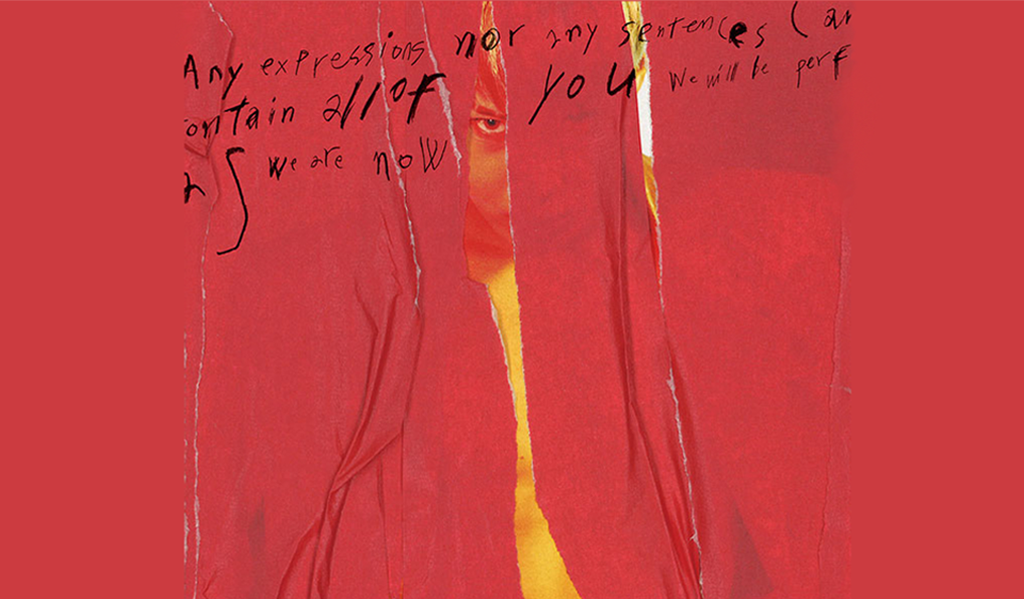 Any expressions nor any sentences (an
ontain all of you we will be perf
as we are now